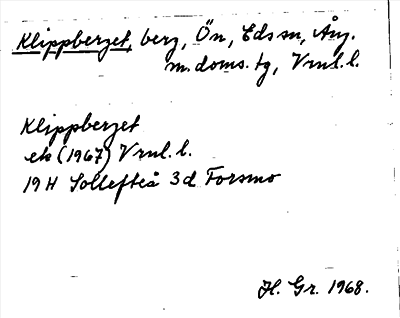 Klippberget, berg, Ön, Eds sn, Ång.
m. doms. tg, Vrnl. l.
Klippberget
ek (1967) Vrnl. l.
19 H Sollefteå 3 d Forsmo
H. Gr. 1968.